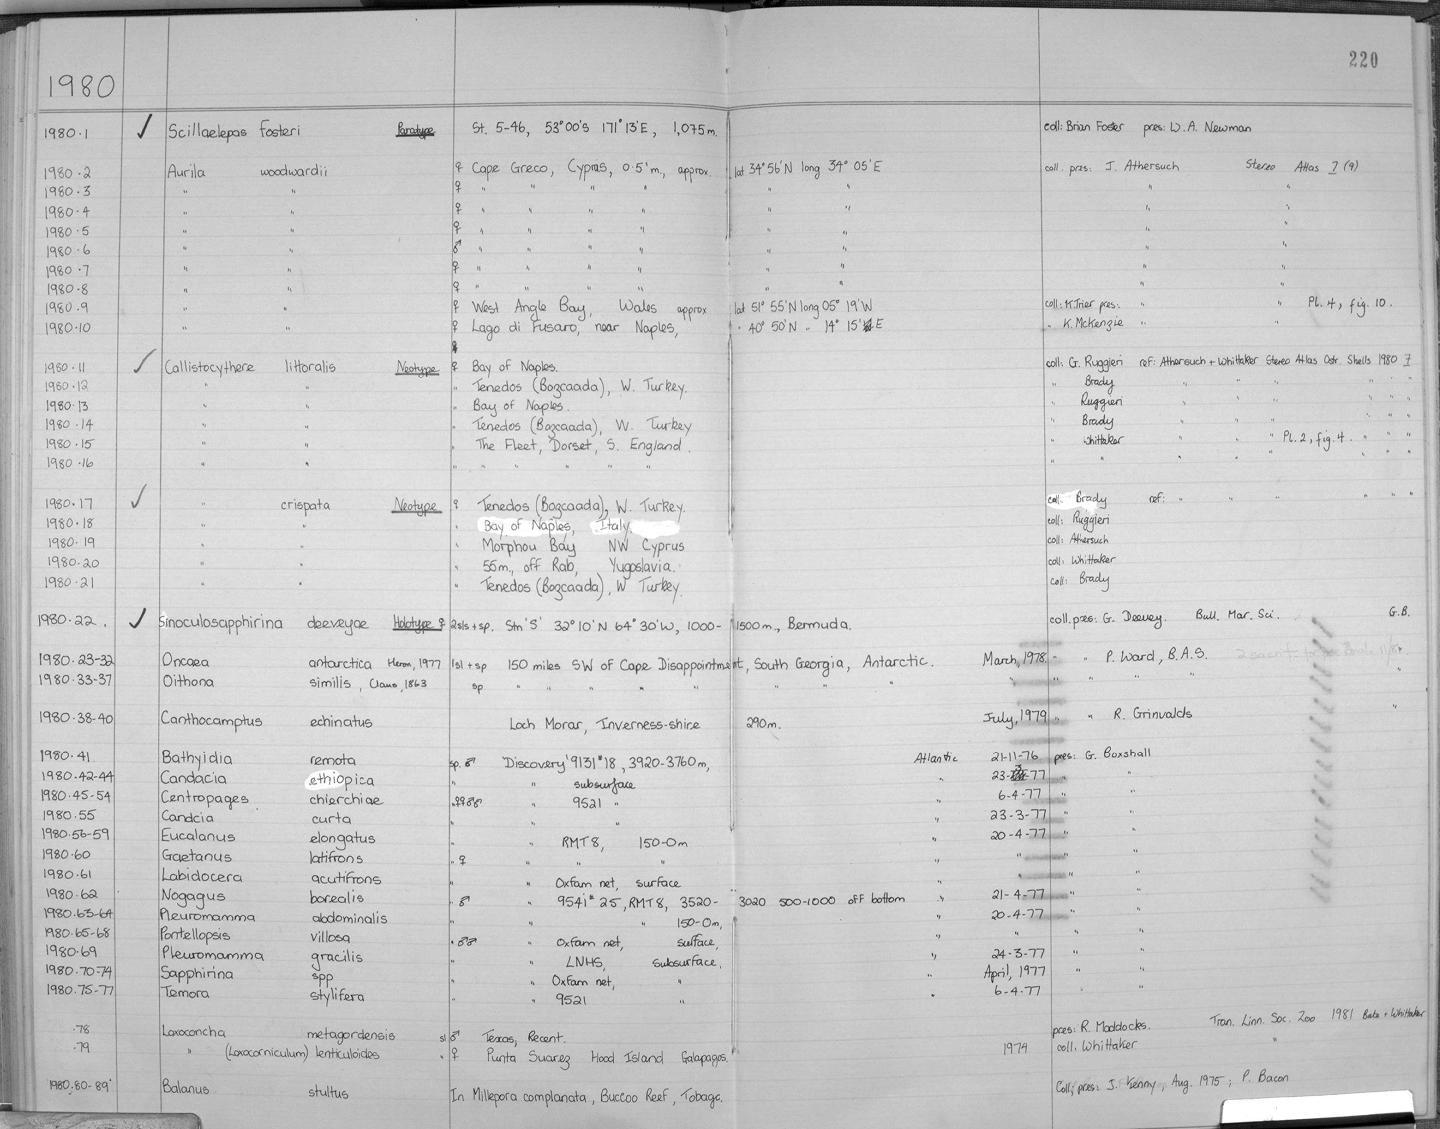 220
1980
1980.1 ✓ Scillaelepas fosteri Paratype St. 5-46, 53°00'S 171°13'E, 1,075m. coll: Brian Foster pres: W.A. Newman
1980.2 Aurila woodwardii ♀ Cape Greco, Cyprus, 0.5'm., approx. lat 34°56'N long 34° 05'E coll. pres: J. Athersuch Stereo Atlas 7 (9)
1980.3 " " ♀ " " " " " " " "
1980.4 " " ♀ " " " " " " " "
1980.5 " " ♀ " " " " " " " "
1980.6 " " ♂ " " " " " " " "
1980.7 " " ♀ " " " " " " " "
1980.8 " " ♀ " " " " " " " "
1980.9 " " ♀ West Angle Bay, Wales approx lat 51° 55'N long 05° 19'W coll: K.Trier pres: " " Pl. 4, fig. 10.
1980.10 " " ♀ Lago di Fusaro, near Naples, " 40° 50'N " 14° 15' E " K. McKenzie " "
1980.11 ✓ Callistocythere littoralis Neotype ♀ Bay of Naples. coll: G. Ruggieri ref: Athersuch + Whittaker Stereo Atlas Ostr. Shells 1980 7
1980.12 " " " Tenedos (Bozcaada), W. Turkey. " Brady " " " " " "
1980.13 " " " Bay of Naples. " Ruggieri " " " " " "
1980.14 " " " Tenedos (Bozcaada), W. Turkey " Brady " " " " " "
1980.15 " " " The Fleet, Dorset, S. England. " Whittaker " " " Pl. 2, fig. 4. " " "
1980.16 " " " " " " " " " " " " " " " "
1980.17 ✓ " crispata Neotype ♀ Tenedos (Bozcaada), W. Turkey. coll: Brady ref: " " " " " "
1980.18 " " " Bay of Naples, Italy coll: Ruggieri
1980.19 " " " Morphou Bay NW Cyprus coll: Athersuch
1980.20 " " " 55m., off Rab, Yugoslavia. coll: Whittaker
1980.21 " " " Tenedos (Bozcaada), W Turkey. coll: Brady
1980.22. ✓ Sinoculosapphirina deeveyae Holotype ♀ 2sls+sp. Stn 'S' 32°10'N 64°30'W, 1000-1500m., Bermuda. coll.pres: G. Deevey. Bull. Mar. Sci. G.B.
1980.23-32 Oncaea antarctica Heron, 1977 1sl+sp 150 miles SW of Cape Disappointment, South Georgia, Antarctic. March, 1978. " " P. Ward, B.A.S. "
1980.33-37 Oithona similis, Claus, 1863 sp " " " " " " " " " " " " "
1980.38-40 Canthocamptus echinatus Loch Morar, Inverness-shire 290m. July, 1979 " " R. Grinvalds "
1980.41 Bathyidia remota sp. ♂ 'Discovery' 9131#18, 3920-3760m, Atlantic 21-11-76 pres: G. Boxshall
1980.42-44 Candacia ethiopica " " subsurface " 23-3-77 " "
1980.45-54 Centropages chierchiae "♀♀♂♂ " 9521 " " 6-4-77 " "
1980.55 Candcia curta " " " " 23-3-77 " "
1980.56-59 Eucalanus elongatus " " RMT8, 150-0m " 20-4-77 " "
1980.60 Gaetanus latifrons "♀ " " " " " " "
1980.61 Labidocera acutifrons " " Oxfam net, surface " " " "
1980.62 Nogagus borealis "♂ " 9541#25, RMT8, 3520-3020 500-1000 off bottom " 21-4-77 " "
1980.63-64 Pleuromamma abdominalis " " " 150-0m, " 20-4-77 " "
1980.65-68 Pontellopsis villosa "♂♂ " Oxfam net, surface, " " " "
1980.69 Pleuromamma gracilis " " LNHS, subsurface, " 24-3-77 " "
1980.70-74 Sapphirina spp " " Oxfam net, " " April, 1977 " "
1980.75-77 Temora stylifera " " 9521 " " 6-4-77 " "
.78 Loxoconcha metagordensis sl ♂ Texas, Recent. pres: R. Maddocks. Tran. Linn. Soc. Zoo 1981 Bate + Whittaker
.79 " (Loxocorniculum) lenticuloides " ♀ Punta Suarez Hood Island Galapagos. 1974 coll. Whittaker "
1980.80-89 Balanus stultus In Millepora complanata, Buccoo Reef, Tobago. Coll; pres: J. Kenny, Aug. 1975; P. Bacon